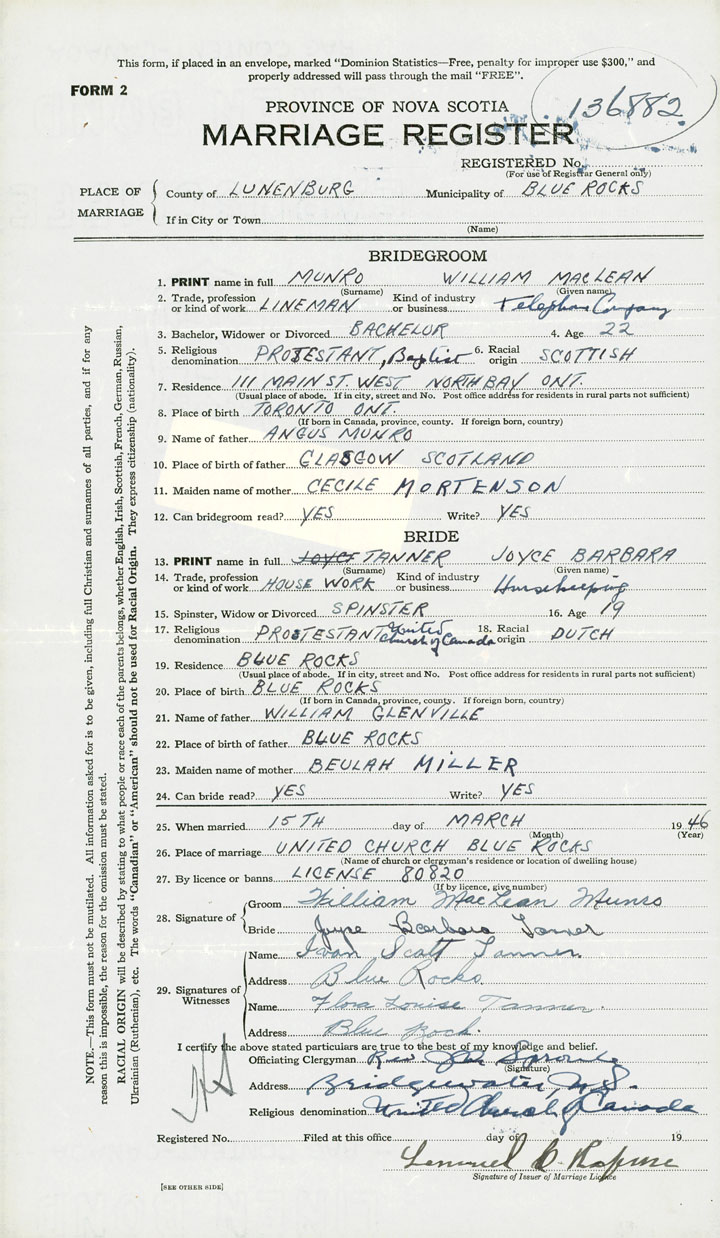 This form, if placed in an envelope, marked “Dominion Statistics—Free, penalty for improper use $300,” and
properly addressed will pass through the mail “FREE”.
FORM 2
PROVINCE OF NOVA SCOTIA
136882
MARRIAGE REGISTER
REGISTERED No.
(For use of Registrar General only)
PLACE OF MARRIAGE
County of LUNENBURG Municipality of BLUE ROCKS
If in City or Town
(Name)
BRIDEGROOM
1. PRINT name in full MUNRO WILLIAM MACLEAN
(Surname) (Given name)
2. Trade, profession or kind of work LINEMAN Kind of industry or business Telephone Company
3. Bachelor, Widower or Divorced BACHELOR 4. Age 22
5. Religious denomination PROTESTANT, Baptist 6. Racial origin SCOTTISH
7. Residence 111 MAIN ST. WEST NORTH BAY ONT.
(Usual place of abode. If in city, street and No. Post office address for residents in rural parts not sufficient)
8. Place of birth TORONTO ONT.
(If born in Canada, province, county. If foreign born, country)
9. Name of father ANGUS MUNRO
10. Place of birth of father GLASGOW SCOTLAND
11. Maiden name of mother CECILE MORTENSON
12. Can bridegroom read? YES Write? YES
BRIDE
13. PRINT name in full JOYCE TANNER JOYCE BARBARA
(Surname) (Given name)
14. Trade, profession or kind of work HOUSE WORK Kind of industry or business Housekeeping
15. Spinster, Widow or Divorced SPINSTER 16. Age 19
17. Religious denomination PROTESTANT United Church of Canada 18. Racial origin DUTCH
19. Residence BLUE ROCKS
(Usual place of abode. If in city, street and No. Post office address for residents in rural parts not sufficient)
20. Place of birth BLUE ROCKS
(If born in Canada, province, county. If foreign born, country)
21. Name of father WILLIAM GLENVILLE
22. Place of birth of father BLUE ROCKS
23. Maiden name of mother BEULAH MILLER
24. Can bride read? YES Write? YES
25. When married 15TH day of MARCH 1946
(Month) (Year)
26. Place of marriage UNITED CHURCH BLUE ROCKS
(Name of church or clergyman's residence or location of dwelling house)
27. By licence or banns LICENSE 80820
(If by licence, give number)
28. Signature of
Groom William MacLean Munro
Bride Joyce Barbara Tanner
29. Signatures of Witnesses
Name Ivan Scott Tanner
Address Blue Rocks
Name Flora Louise Tanner.
Address Blue Rock.
I certify the above stated particulars are true to the best of my knowledge and belief.
Officiating Clergyman Rev.
(Signature)
Address Bridgewater, N.S.
Religious denomination United Church of Canada
Registered No. Filed at this office day of 19
Lemuel C.
Signature of Issuer of Marriage Licence
[SEE OTHER SIDE]
NOTE.—This form must not be mutilated. All information asked for is to be given, including full Christian and surnames of all parties, and if for any
reason this is impossible, the reason for the omission must be stated.
RACIAL ORIGIN will be described by stating to what people or race each of the parents belongs, whether English, Irish, Scottish, French, German, Russian,
Ukrainian (Ruthenian), etc. The words “Canadian” or “American” should not be used for Racial Origin. They express citizenship (nationality).